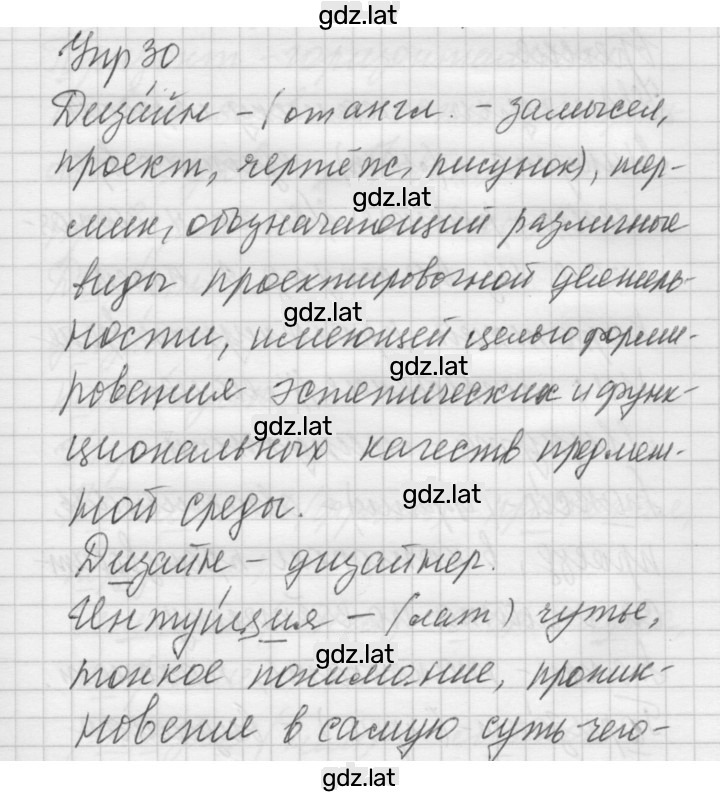 gdz.lat
Упр 30
Дизайн – (от англ. – замысел,
проект, чертёж, рисунок), тер-
gdz.lat
мин, обозначающий различные
виды проектировочной деятель-
gdz.lat
ности, имеющей целью форми-
gdz.lat
рования эстетических и функ-
gdz.lat
циональных качеств предмет-
gdz.lat
ной среды.
Дизайн – дизайнер.
Интуиция – (лат) чутье,
gdz.lat
тонкое понимание, проник-
новение в самую суть чего-
gdz.lat